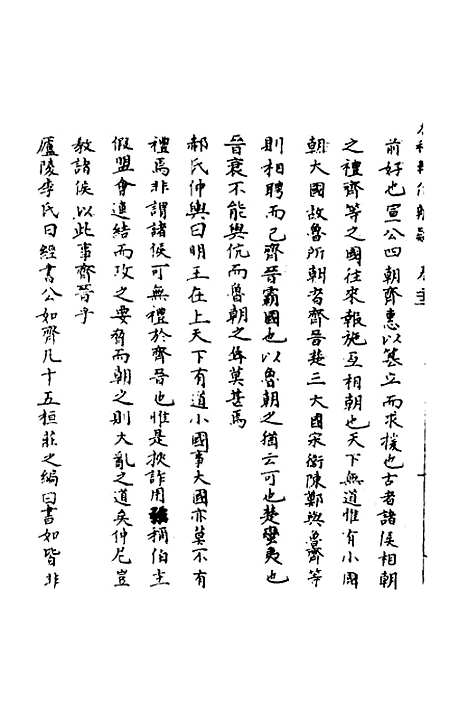 前好也宣公四朝齊惠以篡立而求援也古者諸侯相朝
之禮齊等之國往來報施互相朝也天下無道惟有小國
朝大國故魯所朝者齊晉楚三大國宋衛陳鄭與魯齊等
則相聘而已齊晉霸國也以魯朝之猶云可也楚蠻夷也
晉衰不能與伉而魯朝之辱莫甚焉
郝氏仲輿曰明王在上天下有道小國事大國亦莫不有
禮焉非謂諸侯可無禮於齊晉也惟是挾詐用強稱伯主
假盟會連結而攻之要脅而朝之則大亂之道矣仲尼豈
教諸侯以此事齊晉乎
廬陵李氏曰經書公如齊凡十五桓莊之編曰書如皆非